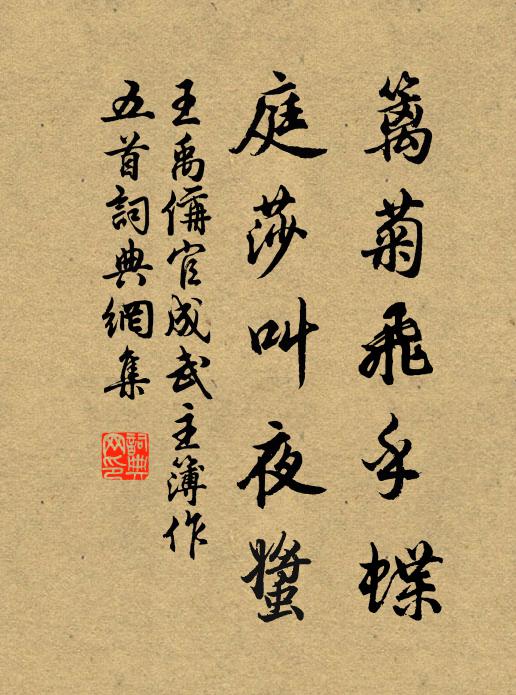 篱菊飛午蝶
庭莎叫夜螿
王禹偁官成武主簿作
五首詞典網集
詞典
网印